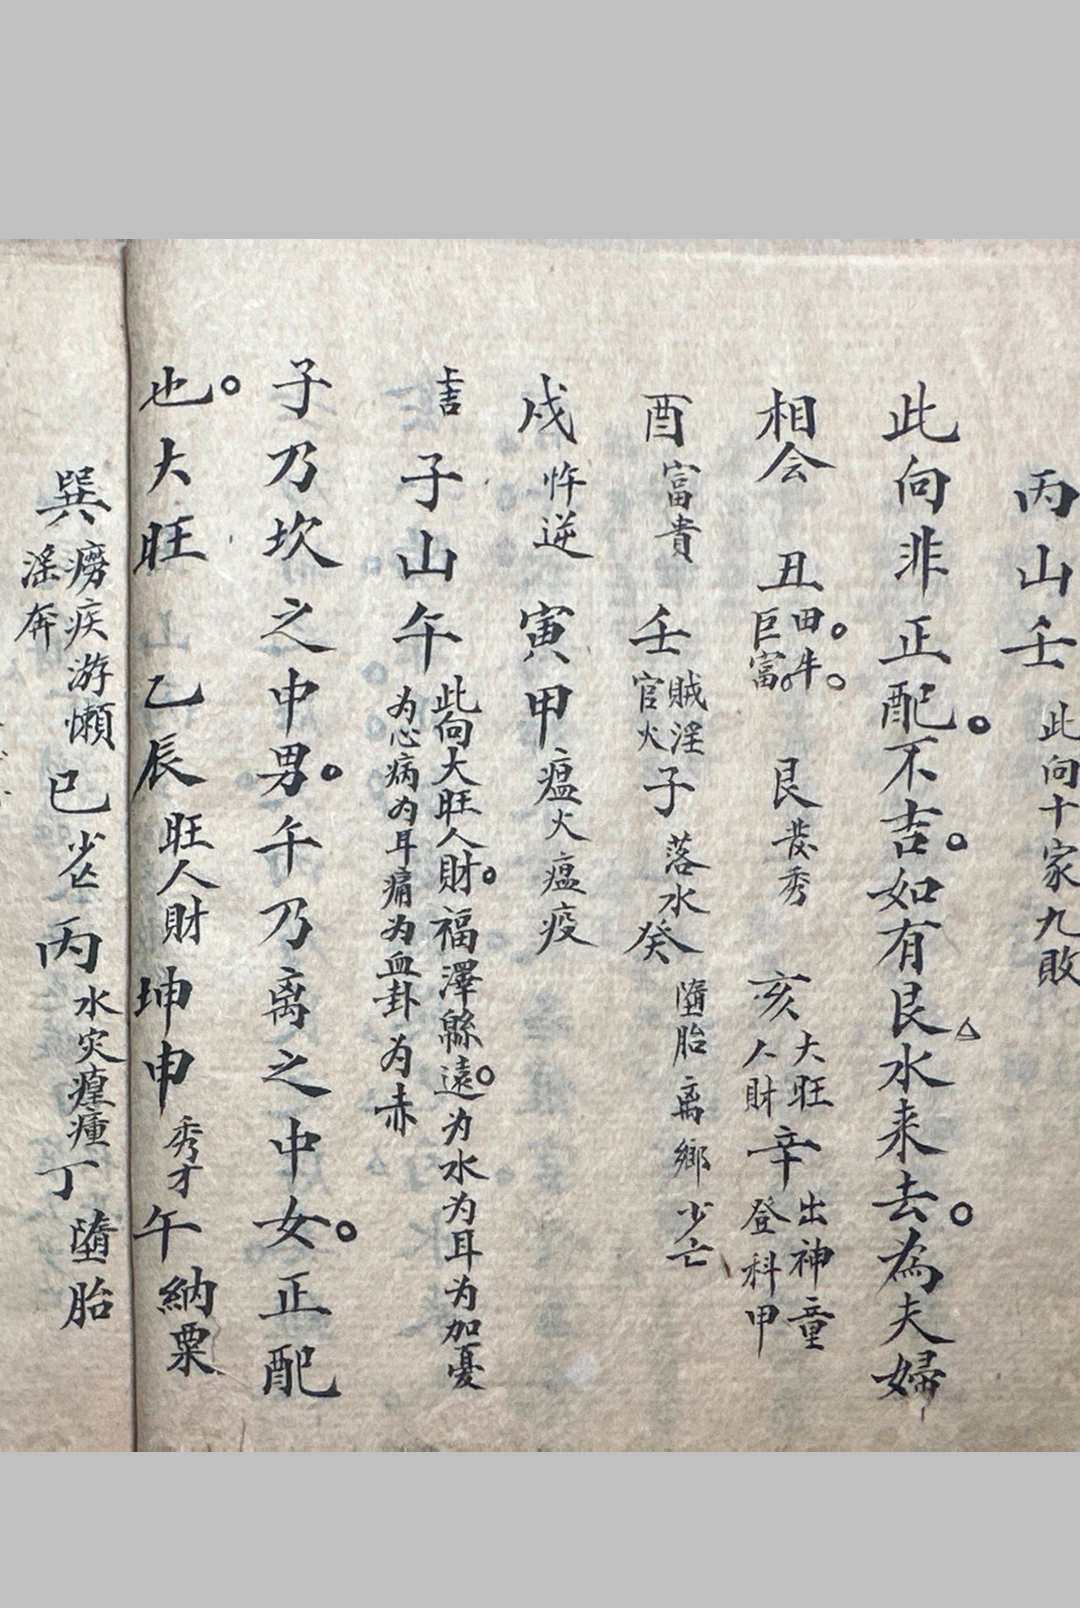 丙山壬此向十家九敗
此向非正配。不吉。如有艮水来去。為夫婦
相会 丑田牛。巨富。 艮發秀 亥大旺人財辛出神童登科甲
酉富貴 壬賊淫官火子落水癸墮胎离鄉少亡
戍忤逆 寅甲瘟火瘟疫
上吉子山午此向大旺人財。福澤綿遠。为水为耳为加憂为心病为耳痛为血卦为赤
子乃坎之中男。午乃离之中女。正配
也。大旺 乙辰旺人財坤申秀才午納粟
巽癆疾游懶淫奔巳少亡丙水灾瘟瘇丁墮胎